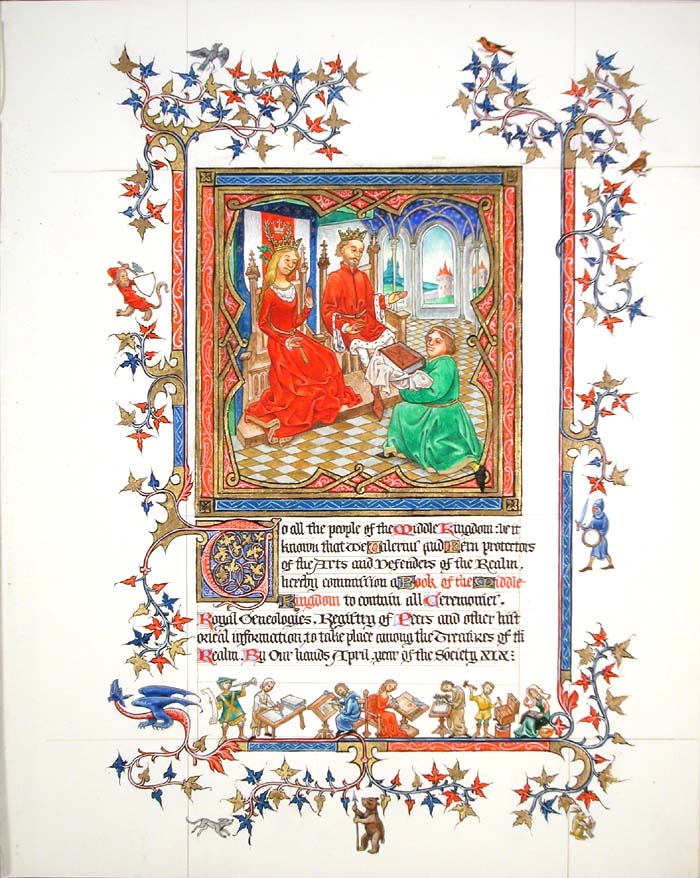 To all the people of the Middle Kingdom: be it
known that We Talerius and Fern protectors
of the Arts and Defenders of the Realm,
hereby commission a Book of the Middle-
Kingdom to contain all Ceremonies,
Royal Geneologies, Registry of Peers and other hist
orical information, to take place among the Treasures of th
Realm. By Our hands April, year of the Society XIX: